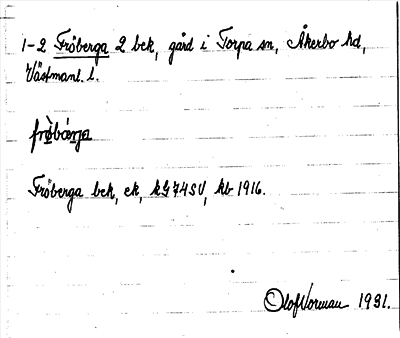 1-2 Fröberga 2 bek, gård i Torpa sn, Åkerbo hd,
Västmanl. l.
frò̀bǽrja
Fröberga bek, ek, kG74SV, kb 1916.
Olof Norman 1931.